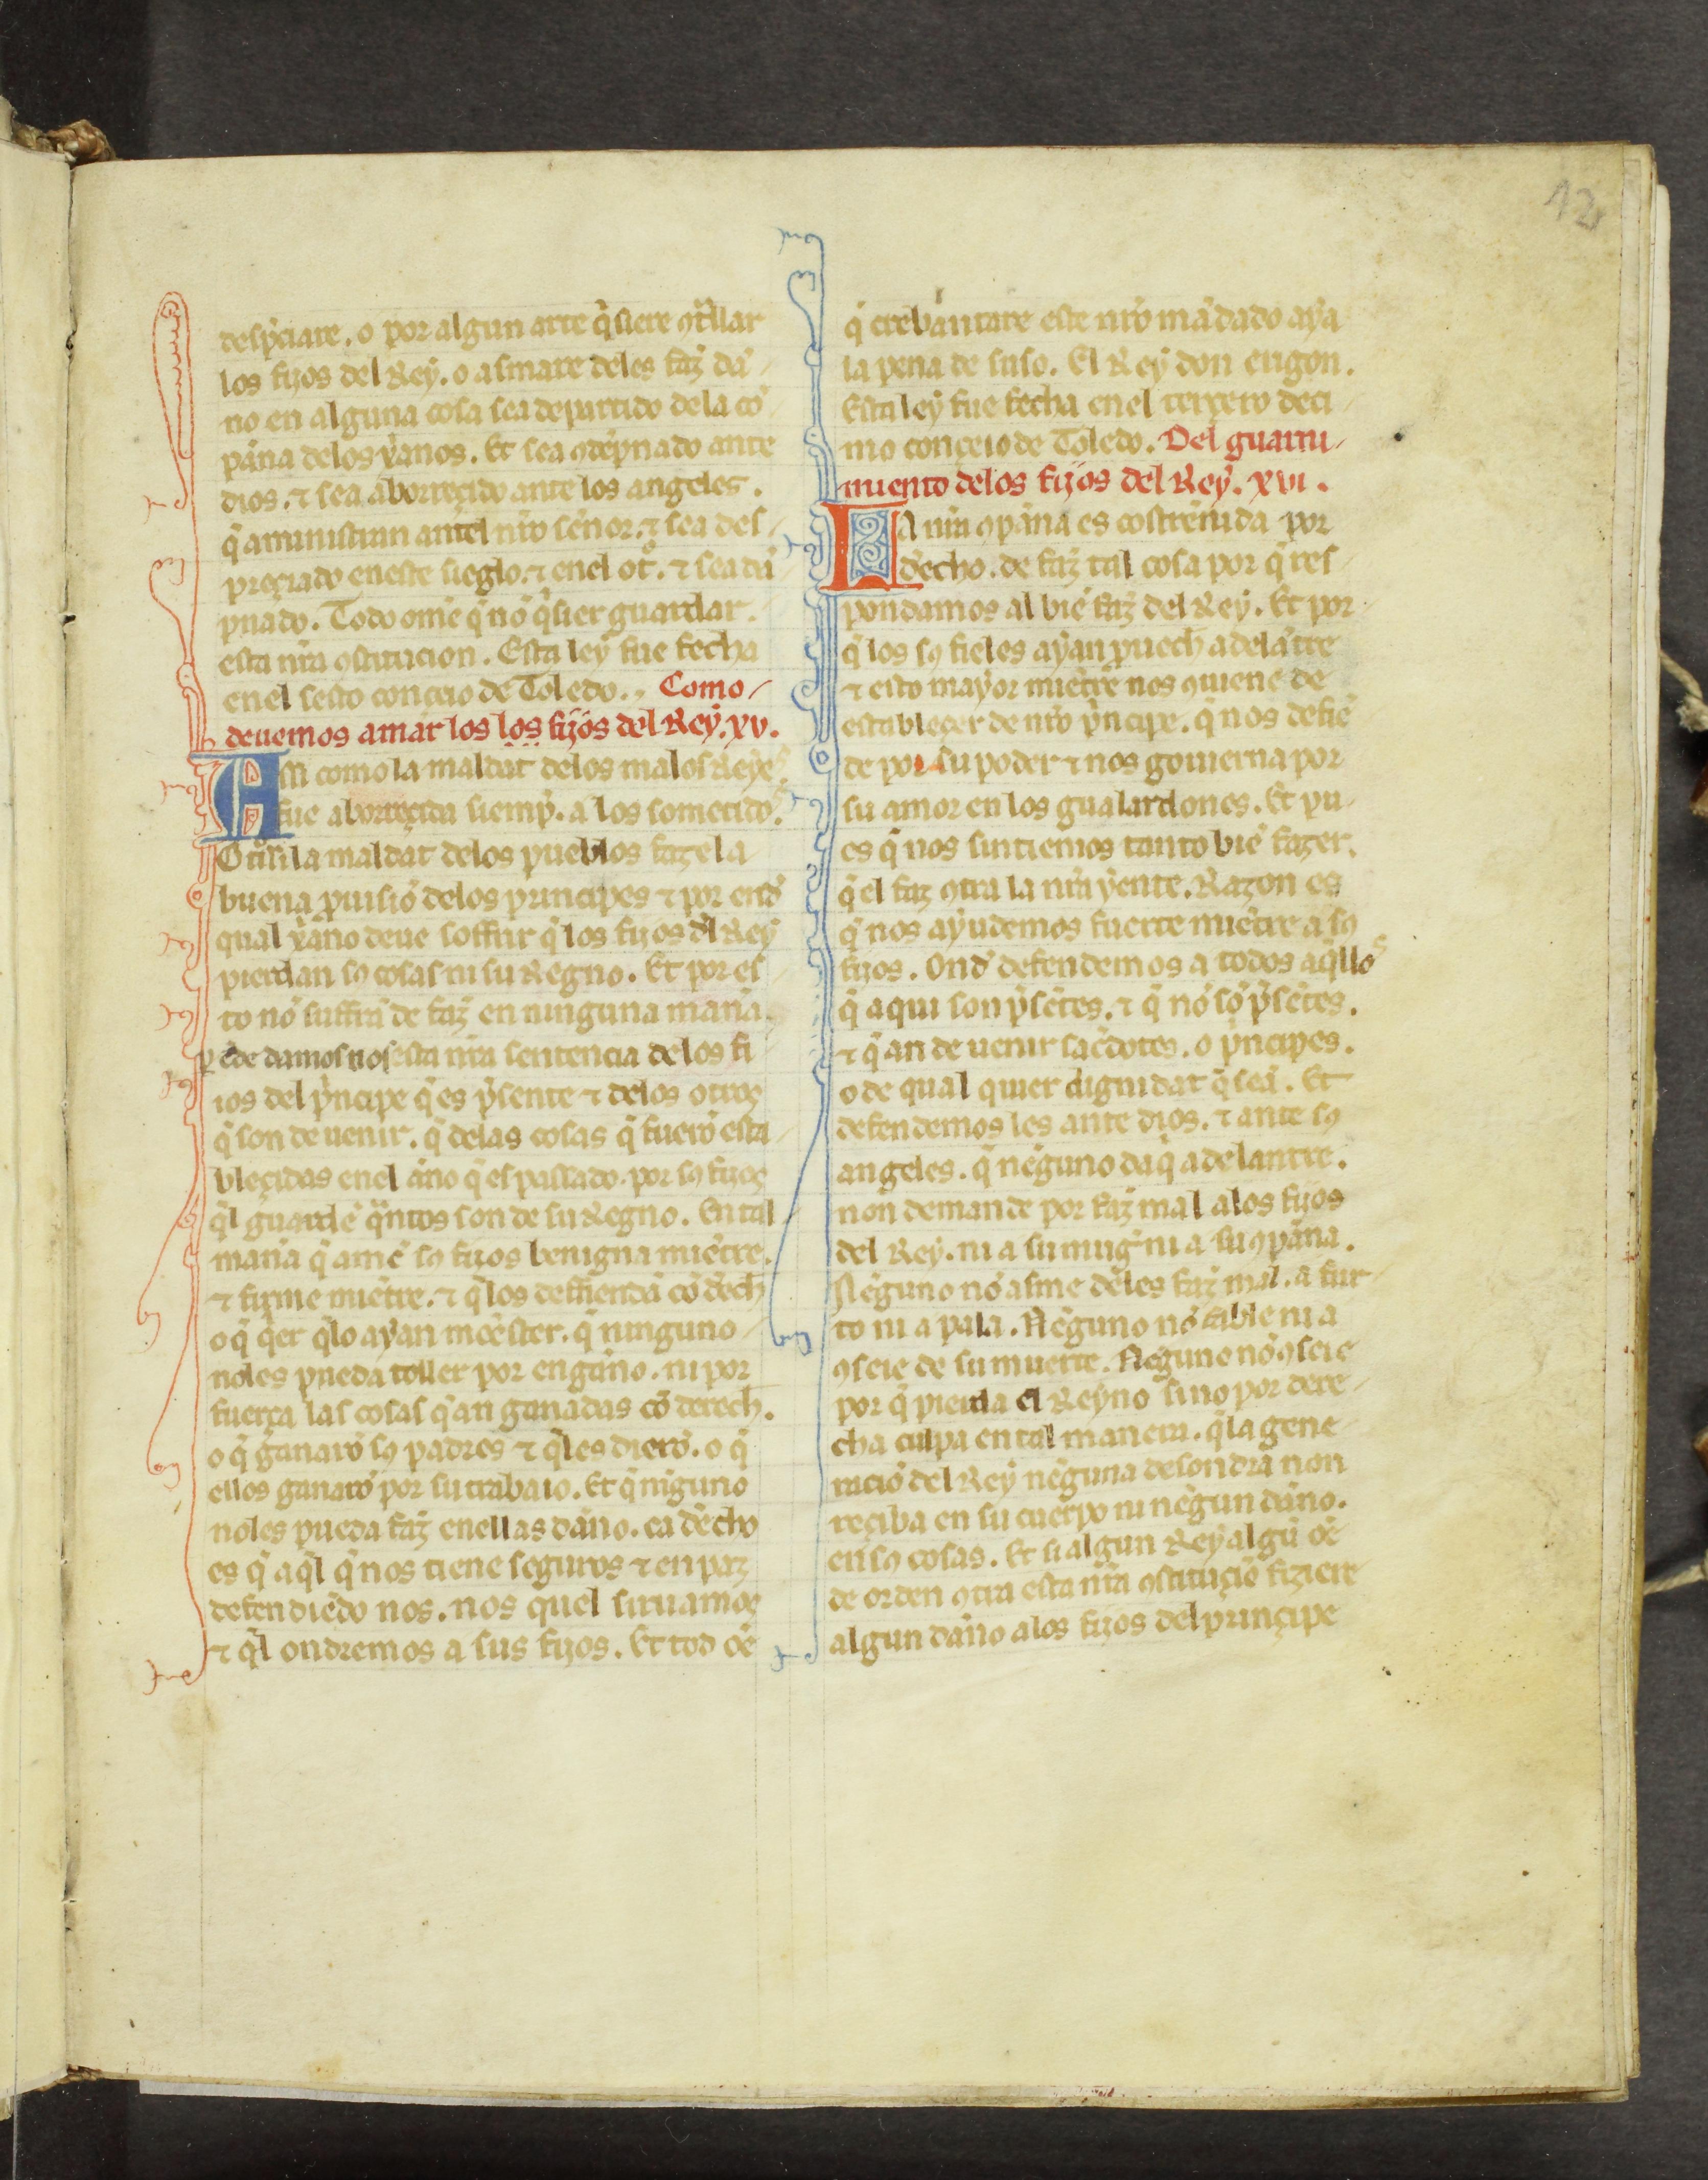 12
desp̄ciare. o por algun arte q̄ siere ꝯtᵃllar
los fijos del Rey. o asmare deles faz̄ da
no en alguna cosa sea departido dela cō
pāna delos xp̄anos. Et sea ꝯdēpnado ante
dios. ⁊ sea aborreçido ante los angeles.
q̄ aministran antel nr̄o sen̄or. ⁊ sea des
preçiado en este sieglo. ⁊ enel ot̊. ⁊ sea dā
pnado. Todo om̄e q̄ nō q̄sier guardar.
esta nr̄a ꝯstitucion. Esta ley fue fecha
enel sesto conceio de Toledo. Como
deuemos amar los los fijos del Rey. xv.
Assi como la maldat delos malos Reyes
fue aborreçida siemp̄. a los sometidos.
Otᵒssi la maldat delos pueblos faze la
buena ꝓuisiō delos principes ⁊ por end̄
qual xp̄ano deue soffrir q̄ los fijos dl̄ Rey
pierdan sꝯ cosas ni su Regno. Et por es
to nō suffra de faz̄ en ninguna man̄a.
ꝑ ēde damos nos esta nr̄a sentencia delos fi
ios del p̄ncipe q̄ es p̄sente ⁊ delos otros
q̄ son de uenir. q̄ delas cosas q̄ fuerō esta
bleçidas enel an̄o q̄ es passado. por sꝯ fijos
q̄l guardē qᵃntos son de su Regno. En tal
man̄a q̄ amē sꝯ fijos benigna miētre.
⁊ firme miētre. ⁊ q̄ los deffiendā cō dr̄ech
o q̄ q̄er q̄lo ayan meēster. q̄ ninguno
noles pueda toller por engan̄o. ni por
fuerça las cosas q̄ an ganadas cō derech.
o q̄ ganarō sꝯ padres ⁊ q̄les dierō. o q̄
ellos ganarō por su trabaio. Et q̄ niguno
noles pueda faz̄ enellas dan̄o. ca dr̄echo
es q̄ aq̄l q̄ nos tiene seguros ⁊ en paz
defendiēdo nos. nos quel siruamos
⁊ q̄l ondremos a sus fijos. Et tod oē
q̄ crebantare este nr̄o mādado aya
la pena de suso. El Rey don eugon.
Esta ley fue fecha enel terçero deci
mo conçeio de Toledo. Del guarni
miento delos fijos del Rey. xvi.
La nr̄a ꝯpān̄a es costren̄ida por
dr̄echo. de faz̄ tal cosa por q̄ res
pondamos al biē faz̄ del Rey. Et por
q̄ los sꝯ fieles ayan ꝓuech adelātre
⁊ esto mayor miētre nos ꝯuiene de
estableçer de nr̄o p̄ncipe. q̄ nos defiē
de por su poder ⁊ nos gouierna por
su amor en los gualardones. Et pu
es q̄ nos sintiemos tanto biē fazer.
q̄ el faz ꝯtra la nr̄a yente. Razon es
q̄ nos ayudemos fuerte miētre a sꝯ
fijos. Ond̄ defendemos a todos aq̄llos
q̄ aqui son p̄sētes. ⁊ q̄ nō sō p̄sētes.
⁊ q̄ an de uenir sac̄dotes. o p̄ncipes.
o de qual quier dignidat q̄ seā. Et
defendemos les ante dios. ⁊ ante sꝯ
angeles. q̄ neguno daq̄ adelantre.
non demande por faz̄ mal alos fijos
del Rey. ni a su muḡ ni a su ꝯpān̄a.
Neguno nō asme deles faz̄ mal. a fur
to ni a pala. Neguno nō fable ni a
ꝯseie de su muerte. Neguno nō ꝯseie
por q̄ pierda el Reyno sino por dere
cha culpa en tal manera. q̄ la gene
raciō del Rey neguna desondra non
reçiba en su cuerpo ni negun dan̄o.
en sꝯ cosas. Et si algun Rey algū oē
de orden ꝯtra esta nr̄a ꝯstituçiō fiziere
algun dan̄o alos fijos del prinçipe